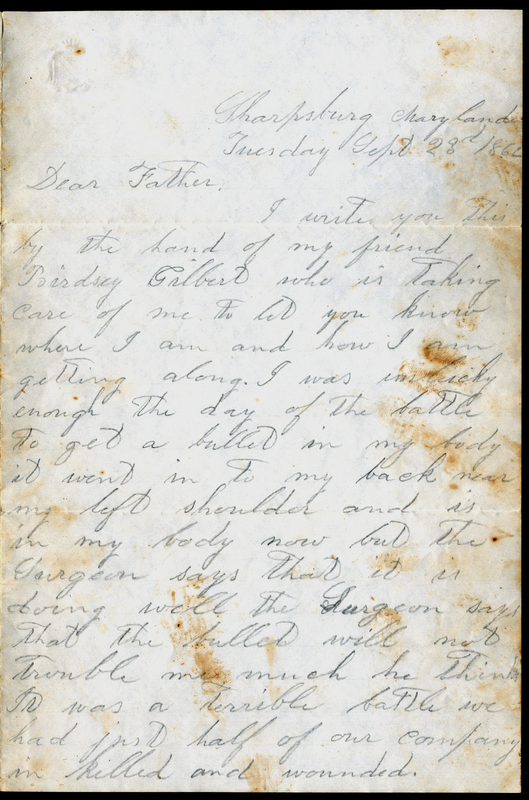 Sharpsburg Maryland
Tuesday Sept. 23rd 1862
Dear Father.
I write you this
by the hand of my friend
Birdsey Gilbert who is taking
care of me to let you know
where I am and how I am
getting along. I was unlucky
enough the day of the battle
to get a bullet in my body
it went in to my back near
my left shoulder and is
in my body now but the
Surgeon says that it is
doing well the Surgeon says
that the bullet will not
trouble me much he thinks
It was a terrible battle we
had just half of our company
in killed and wounded.